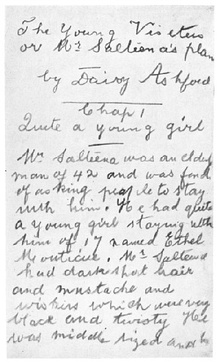 The Young Visiters
or Mr Salteena's plan
by Daisy Ashford
Chap 1
Quite a young girl
Mr Salteena was an elderly
man of 42 and was fond
of asking peaple to stay
with him. He had quite
a young girl staying with
him of 17 named Ethel
Monticue. Mr Salteena
had dark short hair
and mustache and
wiskers which were very
black and twisty He
was middle sized and h